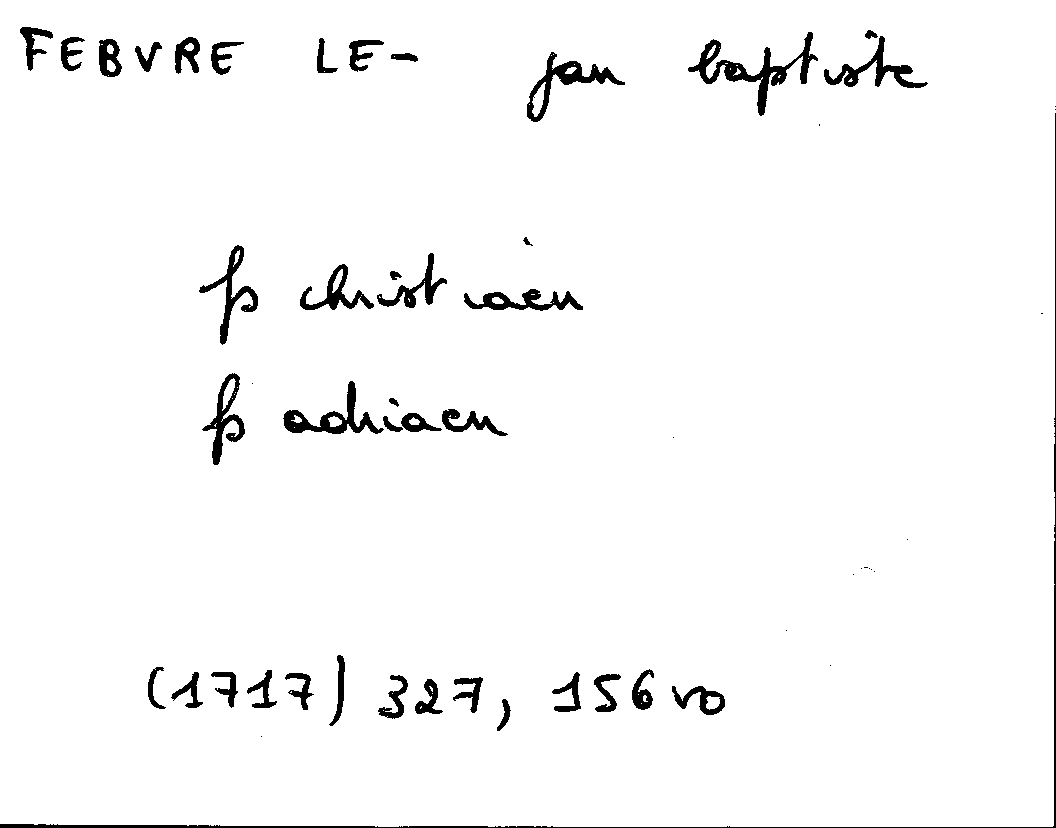 FEBVRE LE- jan baptiste
fs christiaen
fs adriaen
(1717) 327, 156 vo